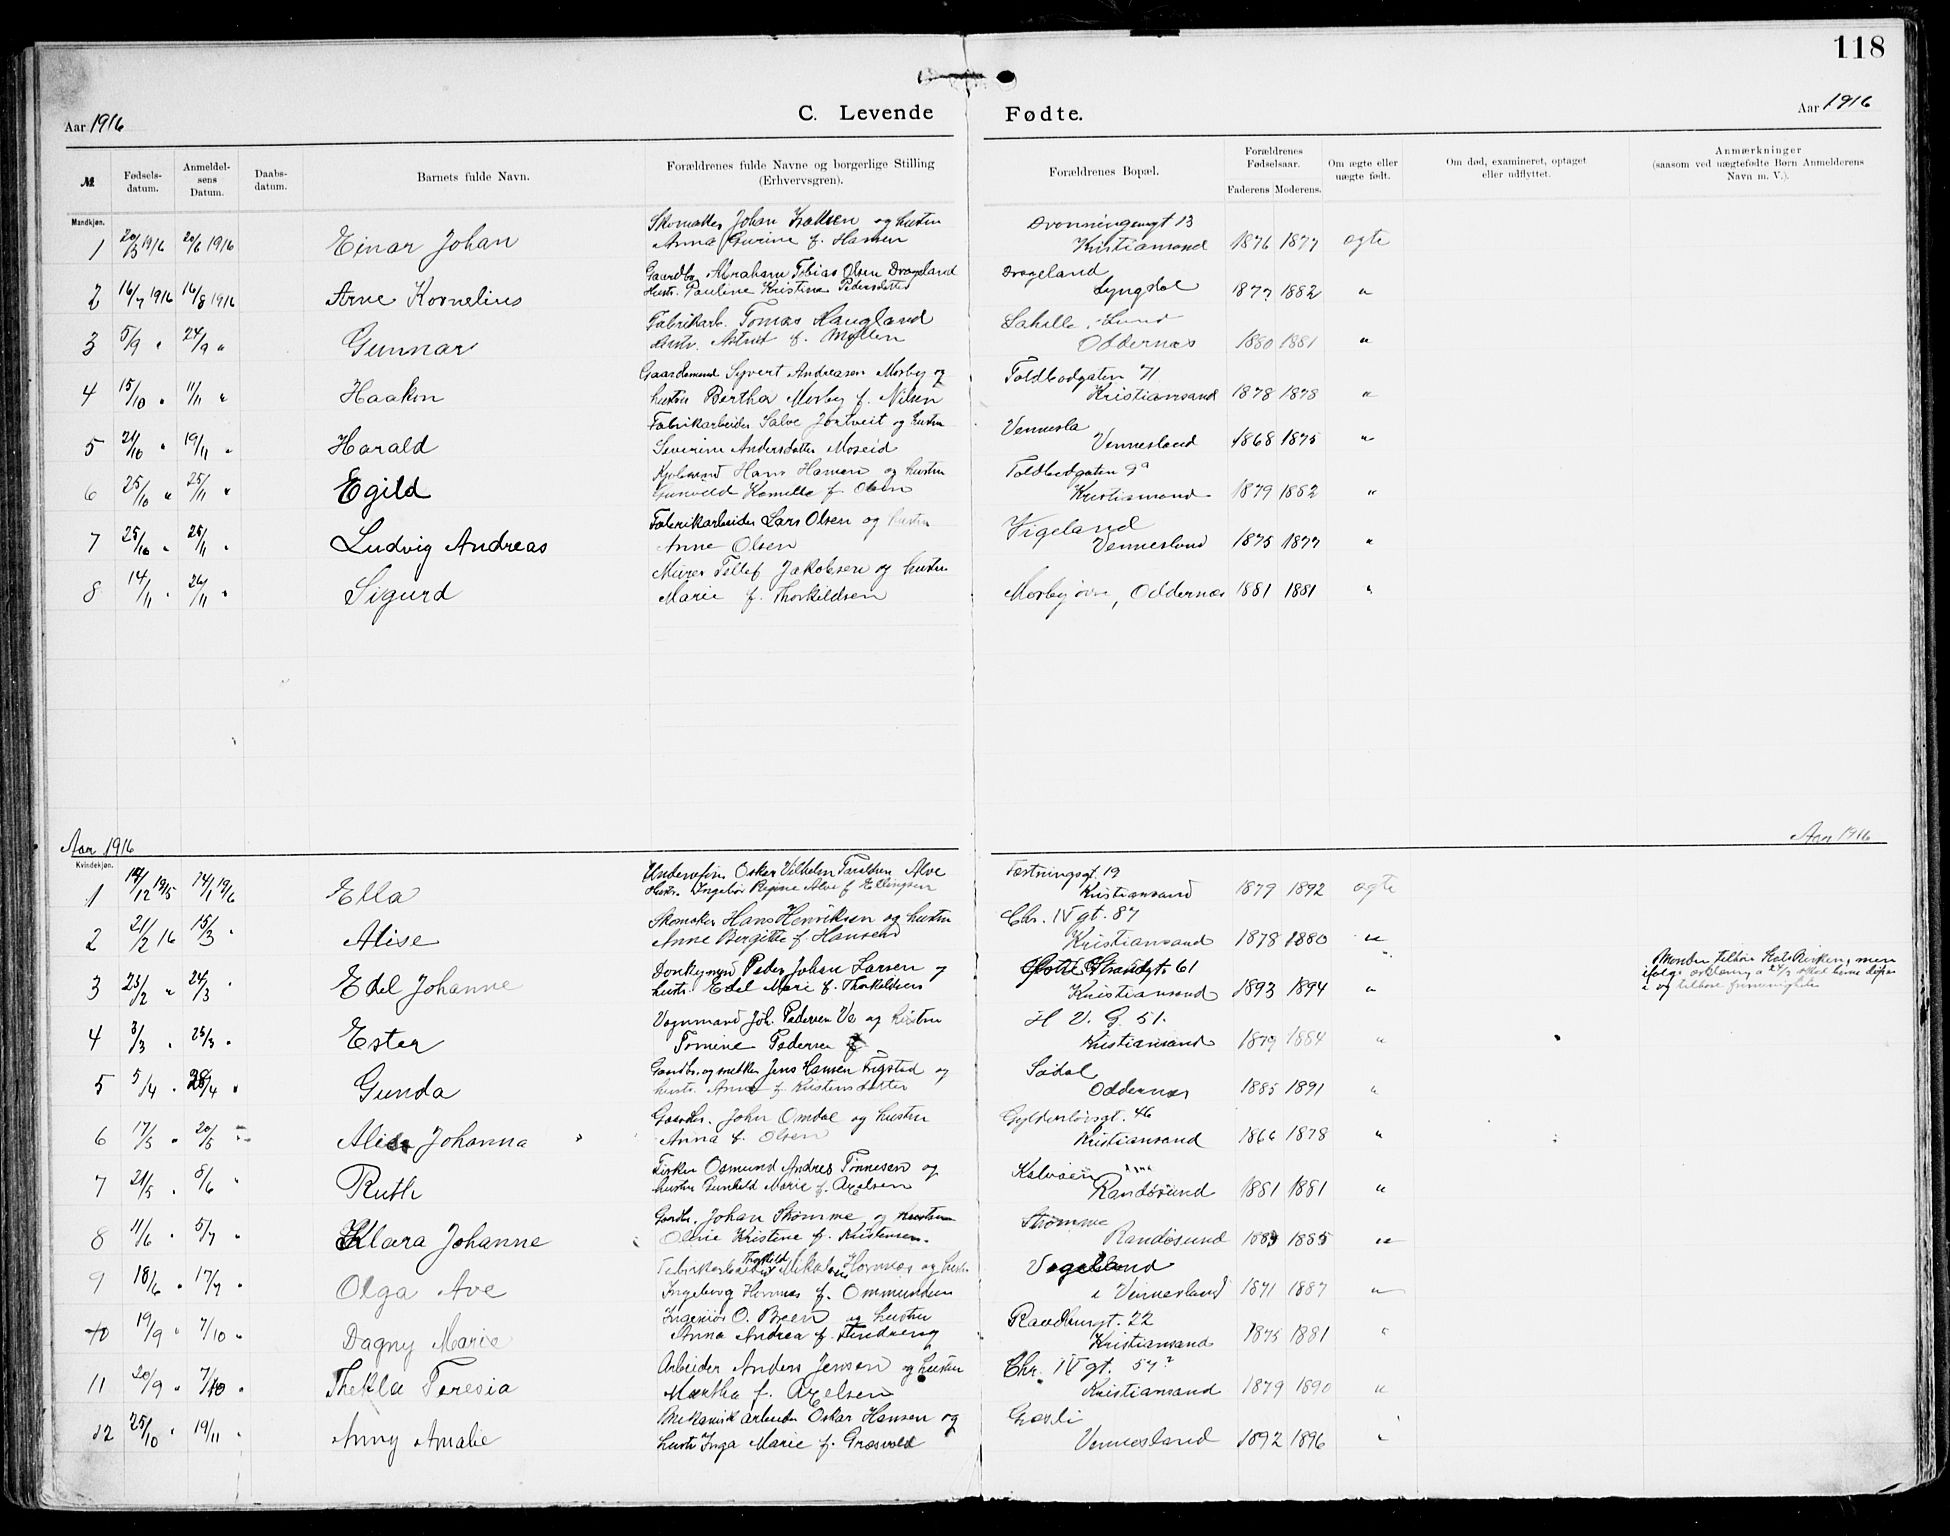 118
Aar 1916
C. Levende Fødte.
Aar 1916
№ Fødsels-datum. Anmeldel-sens Datum. Daabs-datum. Barnets fulde Navn. Forældrenes fulde Navne og borgerlige Stilling (Erhvervsgren). Forældrenes Bopæl. Forældrenes Fødselsaar. Faderens Moderens. Om ægte eller uægte født. Om død, examineret, optaget eller udflyttet. Anmærkninger (saasom ved uægtefødte Børn Anmelderens Navn m. V.).
Mandkjøn.
Johan og hustru Dronningensgt 13
1 20/5 1916 20/6 1916 Einar Johan Anna Gurine f. Hansen Kristiansand 1876 1877 ægte
Gaardbr. Abraham Tobias Olsen Drageland Drageland
2 16/7 1916 16/8 1916 Arne Kornelius Hustr. Pauline Kristine Pedersdatter Lyngdal 1877 1882 "
Fabrikarb. Tomas Haugland Lund
3 5/9 " 24/9 " Gunnar Astrid f. Oddernæs 1880 1881 "
Gaardsmand Syvert Andreasen Mosby og Toldbodgaten 71
4 15/10 " 11/11 " Haakon hustru Bertha Mosby f. Nilsen Kristiansand 1878 1878 "
Fabrikarbeider Salve og hustru Vennesla
5 21/10 " 19/11 " Harald Severine Andersdatter Moseid Vennesland 1868 1875 "
Hans Hansen og hustru Toldbodgaten 9a
6 25/10 " 25/11 " Egild Gunveld Kamilla f. Olsen Kristiansand 1879 1882 "
Fabrikarbeider Lars Olsen og hustru Vigeland
7 25/10 " 25/11 " Ludvig Andreas Anne Olsen Vennesland 1875 1877 "
Murer Tellef Jakobsen og hustru
8 14/11 " 26/11 " Sigurd Marie f. Thorkildsen Mosby øvre, Oddernæs 1881 1881 "
Aar 1916
Aar 1916
Kvindekjøn.
Oskar Vilhelm Alve Festningsgt. 19
1 12/12 1915 14/1 1916 Ella Hustr. Ingebor Regine Alve f. Ellingsen Kristiansand 1879 1892 ægte
Skomaker Hans Henriksen og hustru Chr. IV gt. 87
2 21/2 16 15/3 " Alise Anne Bergitte f. Hansen Kristiansand 1878 1880 "
Peder Johan Larsen og Strandgt. 61
3 23/2 " 24/3 " Edel Johanne hustr. Edel Marie f. Thorkildsen Kristiansand 1893 1894 "
Vognmand Joh. Pedersen Ve og hustru H V. G. 51.
4 3/3 " 25/3 " Ester Tomine Pedersen Kristiansand 1879 1884 "
Gaardbr. og snekker Jens Hansen Frigstad og Sødal
5 5/4 " 28/4 " Gunda hustr. Anne f. Kristensdatter Oddernæs 1885 1891 "
Gaardbr. John Omdal og hustru Gyldenløvsgt. 46
6 17/5 " 20/5 Johanna Anna f. Olsen Kristiansand 1866 1878 "
Fisker Osmund Andres Tønnesen og
7 21/5 " 8/6 " Ruth hustru Gunhild Marie f. Axelsen Randøsund 1881 1881 "
Gaardbr. Johan Strømme og hustru Strømme
8 11/6 " 5/7 " Klara Johanne Oline Kristine f. Kristensen. Randøsund 1883 1885 "
Fabrikarbeider Hornnæs og hustr.
9 18/6 " 17/7 " Olga Ave Ingeborg f. Ommundsen i Vennesland 1871 1887 "
Ingeniør O. Been og hustru Raadhusgt. 22
10 19/9 " 7/10 " Dagny Marie Anna Andrea f. Kristiansand 1875 1881 "
Arbeider Anders Jensen og hustru Chr. IV gt. 57
11 20/9 " 7/10 " Thekla Teresia Martha f. Axelsen Kristiansand 1879 1890 "
Mekanisk arbeider Oskar Hansen og
12 25/10 " 19/11 " Anny Amalie hustr Inga Marie f. Græsvold Vennesland 1892 1896 "